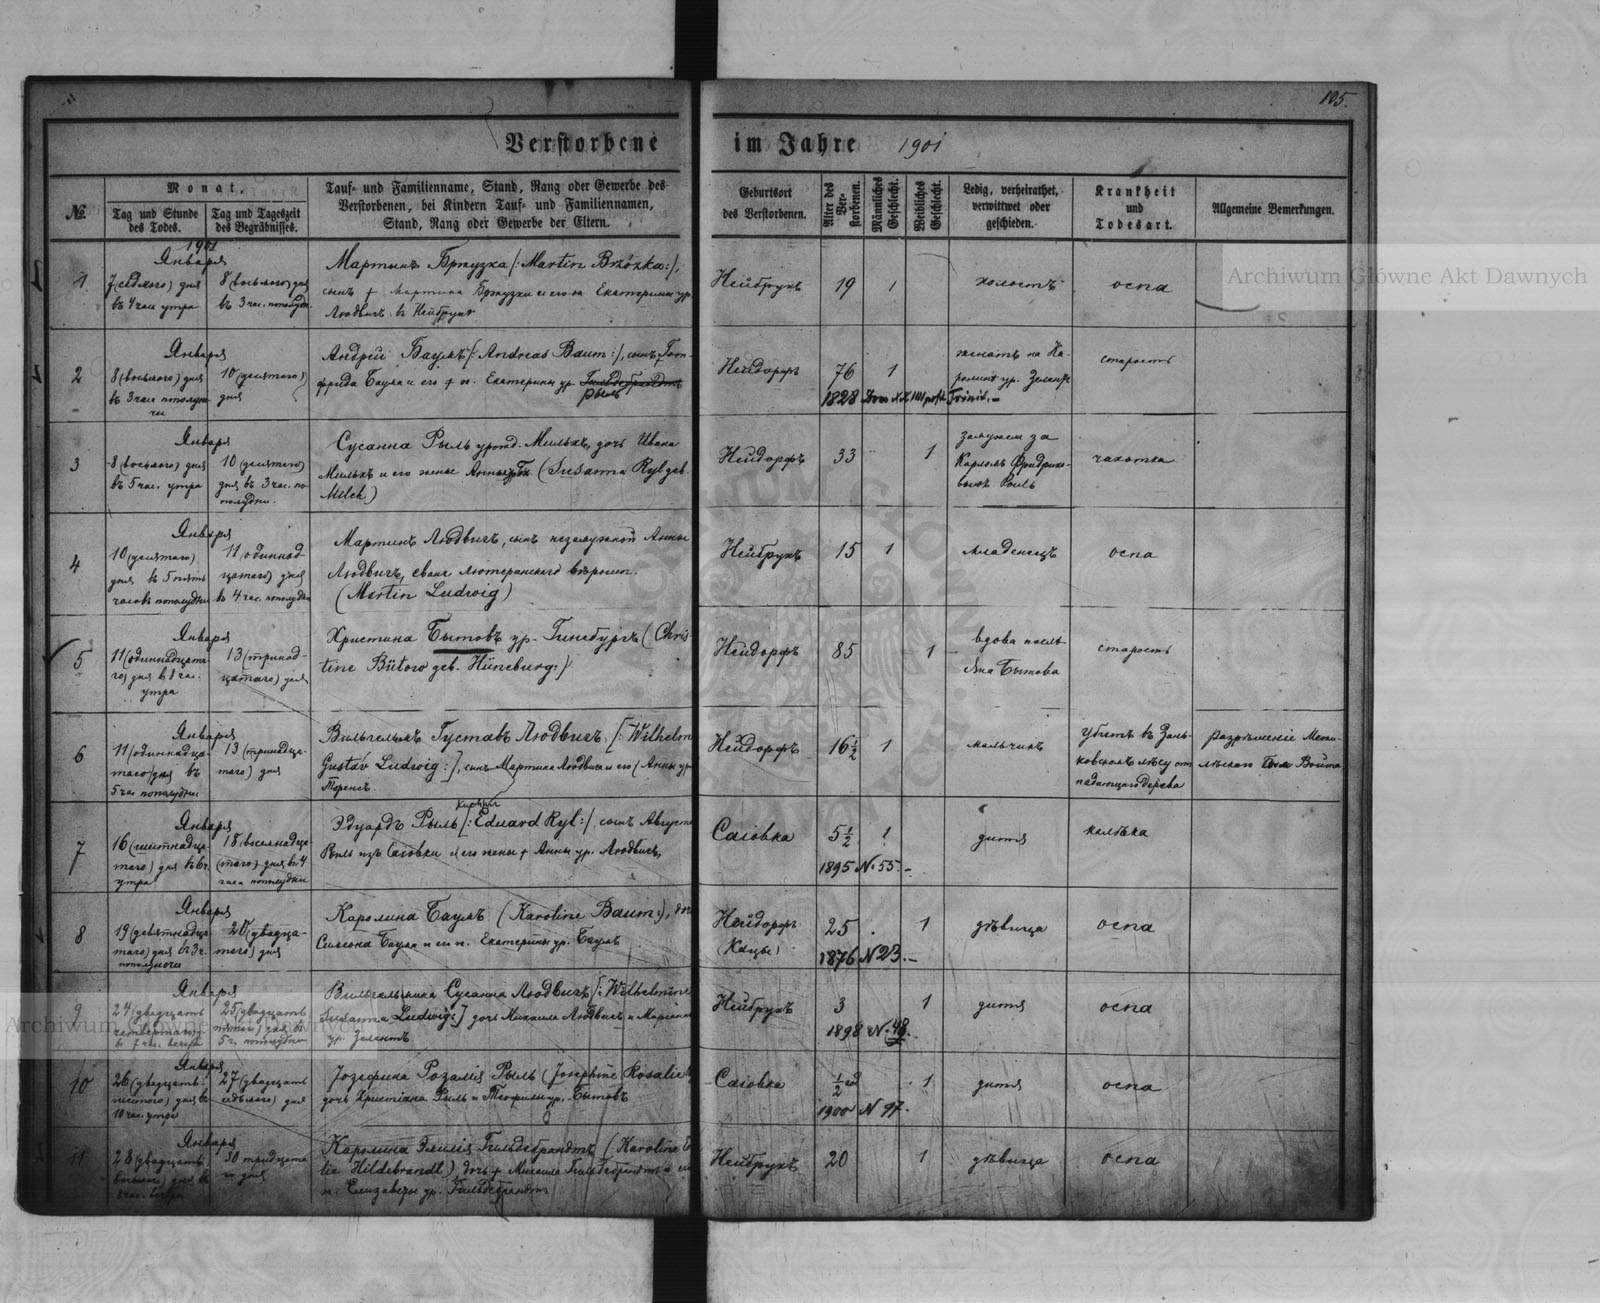 105.
Verstorbene im Jahre 1901
№
Monat.
Tag und Stunde des Todes.
Tag und Tageszeit des Begräbnisses.
Tauf- und Familienname, Stand, Rang oder Gewerbe des
Verstorbenen, bei Kindern Tauf- und Familiennamen,
Stand, Rang oder Gewerbe der Eltern.
Geburtsort
des Verstorbenen.
Alter des Verstorbenen.
Männliches Geschlecht.
Weibliches Geschlecht.
Ledig, verheirathet,
verwittwet oder
geschieden.
Krankheit
und
Todesart.
Allgemeine Bemerkungen.
1901
Января
1
7 (седмого) дня
въ 4 часа утра
8 (восьмого) дня
въ 3 час. пополудни
Мартынъ Бржузка /: Martin Brzózka :/,
сынъ + Мартина Бржузки и его ж. Екатерины ур.
Людвигъ въ Нейбрухѣ
Нейбрухъ
19
1
холостъ
оспа
Января
2
8 (восьмого) дня
10 (десятого)
дня
Андрей Баумъ /: Andreas Baum :/, сынъ Гот-
фрида Баума и его + ж. Екатерины ур. Гильдебрандтъ
Рыль
Нейдорфъ
76
1
1828
женатъ на Ка-
старость
Января
3
8 (восьмого) дня
въ 5 час. утра
10 (десятого)
дня въ 3 час. по
полудни.
Сусанна Рыль урожд. Мильхъ, дочь Ивана
Мильхъ и его жены Анны (Susanna Ryl geb.
Milch)
Нейдорфъ
33
1
замужем за
Карломъ Фридрихо-
вымъ Рыль
чахотка
Января
4
10 (десятого)
дня въ 5 пять
часовъ пополудни
11 (одиннад-
цатого) дня
въ 4 час. пополудни
Мартинъ Людвигъ, сынъ незамужной Анны
Людвигъ, еванг. лютеранского вѣроисп.
(Martin Ludwig)
Нейбрухъ
15
1
младенецъ
оспа
Января
5
11 (одиннадцато-
го) дня в 8 час.
утра
13 (тринад-
цатого) дня
Христина Бытовъ ур. Гинебургъ (Chris-
tine Bütow geb. Hüneburg :/
Нейдорфъ
85
1
вдова послѣ
Яна Бытова
старость
Января
6
11 (одиннадца-
таго) дня въ
5 час пополудни
13 (тринадца-
таго) дня
Вильгельмъ Густавъ Людвигъ, [: Wilhelm
Gustav Ludwig :], сынъ Мартина Людвига и его (Анны ур.
Нейдорфъ
16 1/2
1
мальчикъ
убитъ въ Зань-
ковскомъ лѣсу от
падающаго дерева
разрѣшеніе
Войта
Января
7
16 (шестнадца-
таго) дня въ 6 ч.
утра
18 (восемнадца-
таго) дня въ 4
часа пополудни
Эдуардъ Рыль /: Eduard Ryl :/, сынъ Августа
Рыль изъ Саіовки и его жены + Анны ур. Людвигъ,
Саіовка
5 1/2
1
1895 N. 55.
дитя
калѣка
Января
8
19 (девятнадца-
таго) дня в 3 ч.
пополуночи
20 (двадца-
таго) дня
Каролина Баумъ (Karoline Baum :), доч
Симеона Баума и его ж. Екатерины ур. Баумъ
Нейдорфъ
25
1
1876 N 23.
дѣвица
оспа
Января
9
24 (двадцать
четвертаго)
в 7 час. вечера
25 (двадцать
пятого) дня в
5 ч. пополудни
Вильгельмина Сусанна Людвигъ /: Wilhelmine
Susanna Ludwig :] дочь Михаила Людвигъ и Маріанны
ур. Зелентъ
Нейбрухъ
3
1
1898 N. 48.
дитя
оспа
Января
10
26 (двадцать
шестого) дня в
10 час. утра
27 (двадцать
седьмого) дня
Іозефина Розалія Рыль (Josephine Rosalie
дочь Христіана Рыль и Теофилы ур. Бытовъ
Саіовка
1/2 год
1
1900 N 97.
дитя
оспа
Января
11
28 (двадцать
восьмого) дня в
8 час. вечера
30 тридцата
го дня
Каролина Эмилія Гильдебрандтъ (Karoline E
lie Hildebrandt) дочь + Михаила Гильдебрандта и его
ж. Елизаветы ур. Гильдебрандтъ
Нейбрухъ
20
1
дѣвица
оспа
Archiwum Główne Akt Dawnych
Archiwum Główne Akt Dawnych